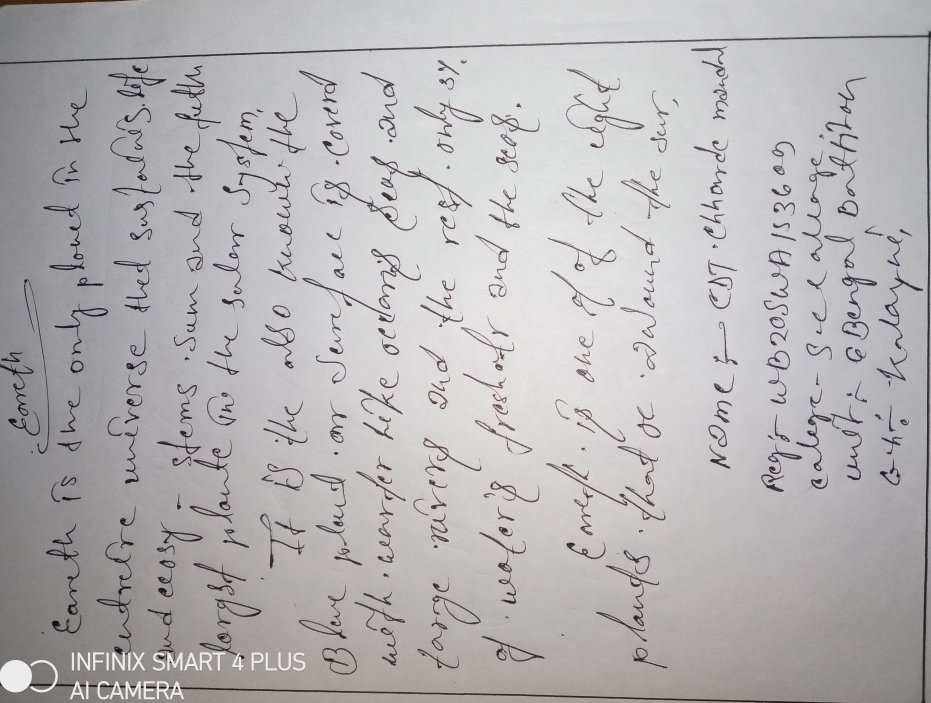 Eareth
Eareth is the only planed in the
entretre universe thed sustadus.life
and ecosy - stems.sum and the futh
forgst plante in the salar system.
It is the also knowh.the
Blue planed.or surface is.coverd
with.warter like occans seas.and
large.rivers and the rest.only 3%.
of.water is freshatr and the seas.
Eareth.is one of of the eight
planets.that oe.around the sur,
Name :- CDT.chhande mandal
Reg:- WB20SWA153609
callege- S-e-e allage
unit:- 6 Bengal Battilion
G-h:- Kalayni,
INFINIX SMART 4 PLUS
AI CAMERA